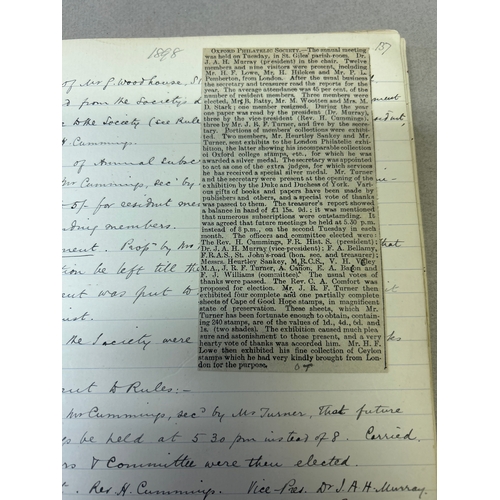 1898
137
OXFORD PHILATELIC SOCIETY.—The annual meeting
was held on Tuesday, in St. Giles' parish-room. Dr.
J. A. H. Murray (president) in the chair. Twelve
members and nine visitors were present, including
Mr. H. F. Lowe, Mr. R. Hilckes and Mr. F. L.
Pemberton, from London. After the usual business
the secretary and treasurer read the reports for the
year. The average attendances was 65 per cent. of the
number of resident members. Three members were
elected, Mrs B. Batty, Mr. M. Wootten and Mrs. M.
D. Stark; one member resigned. During the year
one paper was read by the president (Dr. Murray),
three by the vice-president (Rev. H. Cummings),
three by Mr. J. R. F. Turner, and five by the secre-
tary. Portions of members' collections were exhibi-
ted. Two members, Mr. Heurtley Sankey and Mr.
Turner, sent exhibits to the London Philatelic exhibi-
tion, the latter showing his incomparable collection
of Oxford college stamps, etc., for which he was
awarded a silver medal. The secretary was appointed
to act as one of the extra judges, for which services
he has received a special silver medal. Mr. Turner
and the secretary were present at the opening of the
exhibition by the Duke and Duchess of York. Vari-
ous gifts of books and papers have been made by
publishers and others, and a special vote of thanks
was passed to them. The treasurer's report showed
a balance in hand of £1 15s. 9d.; it was mentioned
that numerous subscriptions were outstanding. It
was agreed that future meetings be held at 5.30 p.m.
instead of 8 p.m., on the second Tuesday in each
month. The officers and committee elected were:
The Rev. H. Cummings, F.R. Hist. S. (president);
Dr. J. A. H. Murray (vice-president); F. A. Bellamy,
F.R.A.S. St. John's-road (hon. sec. and treasurer);
Messrs. Heurtley Sankey, M.R.C.S., V. H. Veley
M.A., J. R. F. Turner, A. Cañon, E. A. Bacon and
F. J. Williams (committee). The usual votes of
thanks were passed. The Rev. C. A. Comfort was
proposed for election. Mr. J. R. F. Turner then
exhibited four complete and one partially complete
sheets of Cape of Good Hope stamps, in magnificent
state of preservation. These sheets, which Mr.
Turner has been fortunate enough to obtain, contain-
ing 240 stamps, are of the values of 1d., 4d., 6d. and
1s. (two shades). The exhibition caused much pleas-
ure and astonishment to those present, and a very
hearty vote of thanks was accorded him. Mr. H. F.
Lowe then exhibited his fine collection of Ceylon
stamps which he had very kindly brought from Lon-
don for the purpose.
of Mr. J. Woodhouse, St
d from the Society's
to the Society (see Rule
H. Cummings.
of Annual Subsc
Mr Cummings, secd by
5/- for resident me
ding members.
ment. Propd by Mr
ion be left till the
ent was put &
ist.
he Society were
ent to Rules:-
Mr Cummings, secd by Mr Turner, that future
gs be held at 5 30 pm instead of 8. Carried.
rs & Committee were then elected.
Rev. H. Cummings. Vice-Pres. Dr J. A. H. Murray.